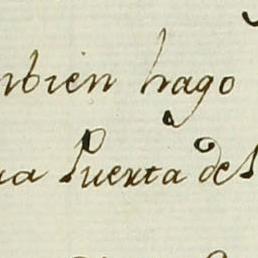 nbien hago
na Puerta del